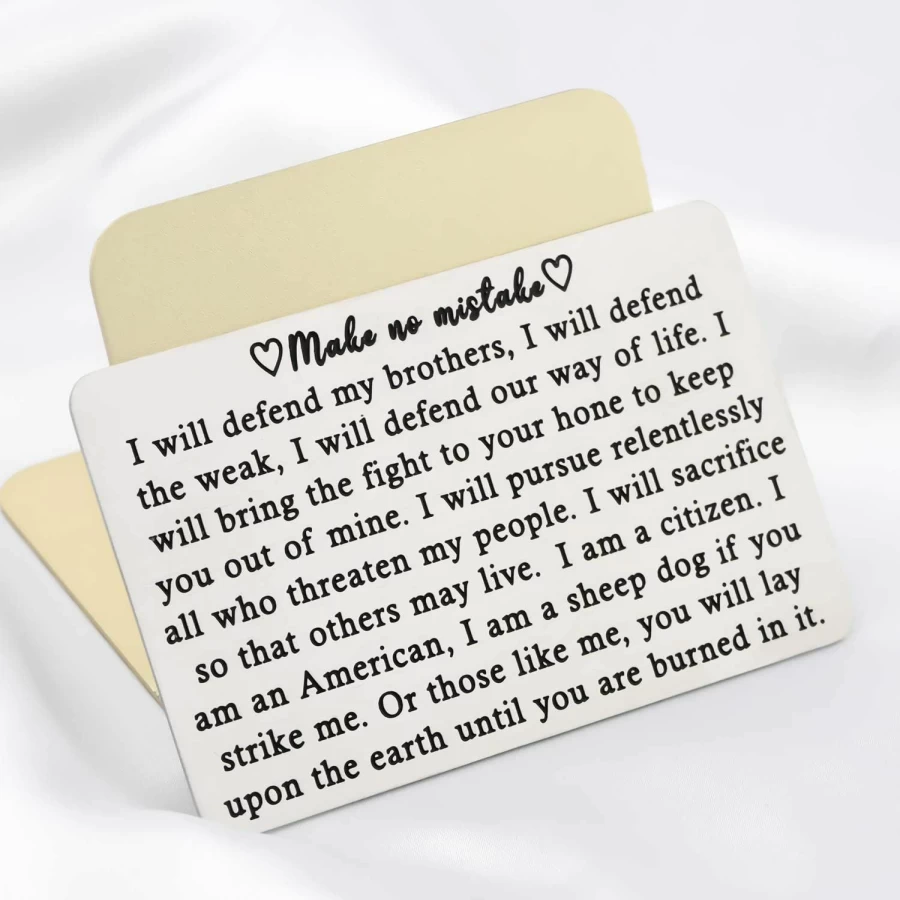 ♡Make no mistake♡
I will defend my brothers, I will defend
the weak, I will defend our way of life. I
will bring the fight to your hone to keep
you out of mine. I will pursue relentlessly
all who threaten my people. I will sacrifice
so that others may live. I am a citizen. I
am an American, I am a sheep dog if you
strike me. Or those like me, you will lay
upon the earth until you are burned in it.